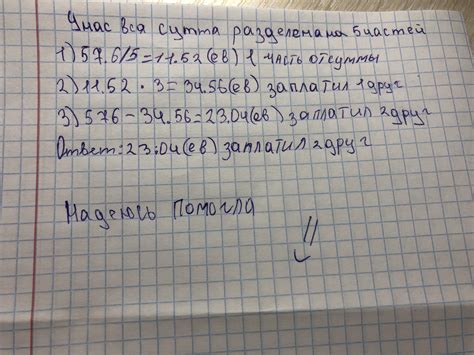 У нас вся сумма разделена на 5 частей
1) 57.6/5=11.52(ев) 1 часть от суммы
2) 11.52 · 3=34.56(ев) заплатил 1 друг
3) 576-34.56=23.04(ев) заплатил 2 друг
Ответ: 23.04(ев) заплатил 2 друг
Надеюсь помогла